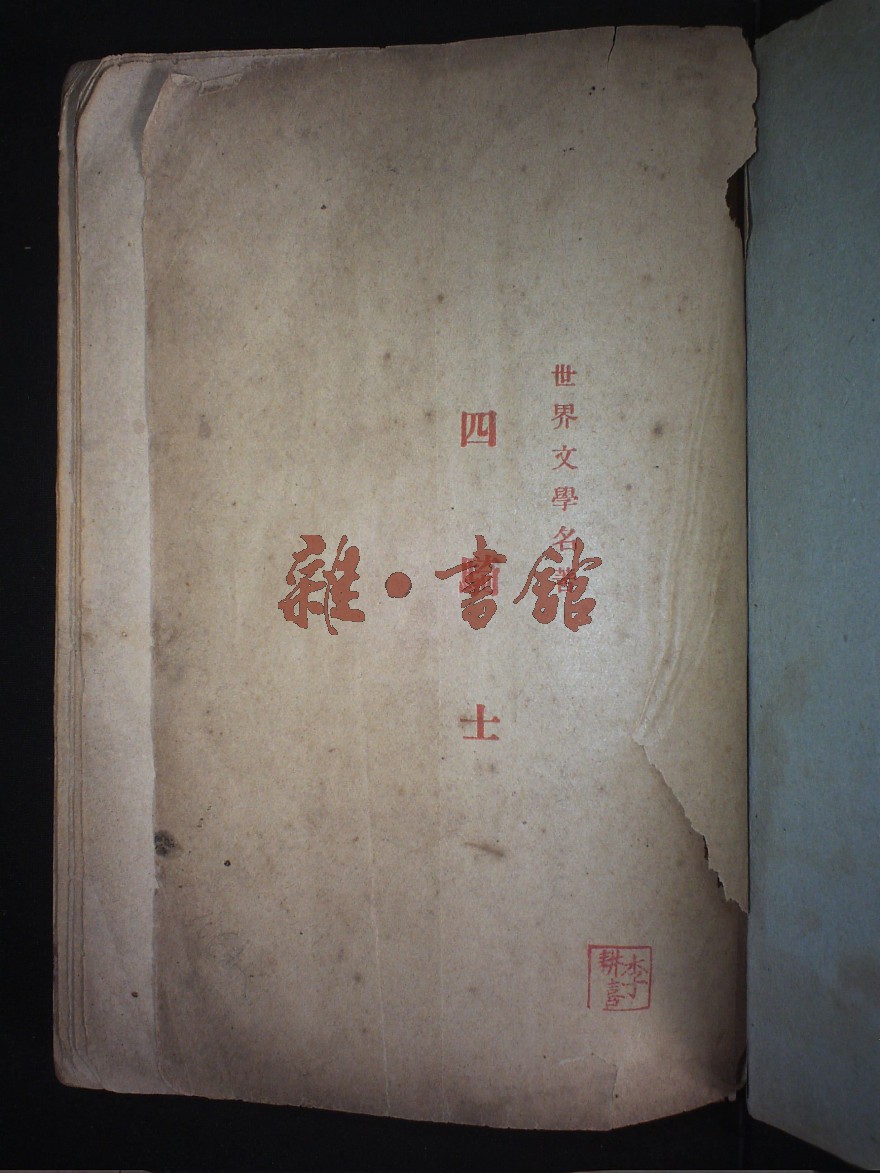 世界文學名著
四騎士
雜·書館
李
耕